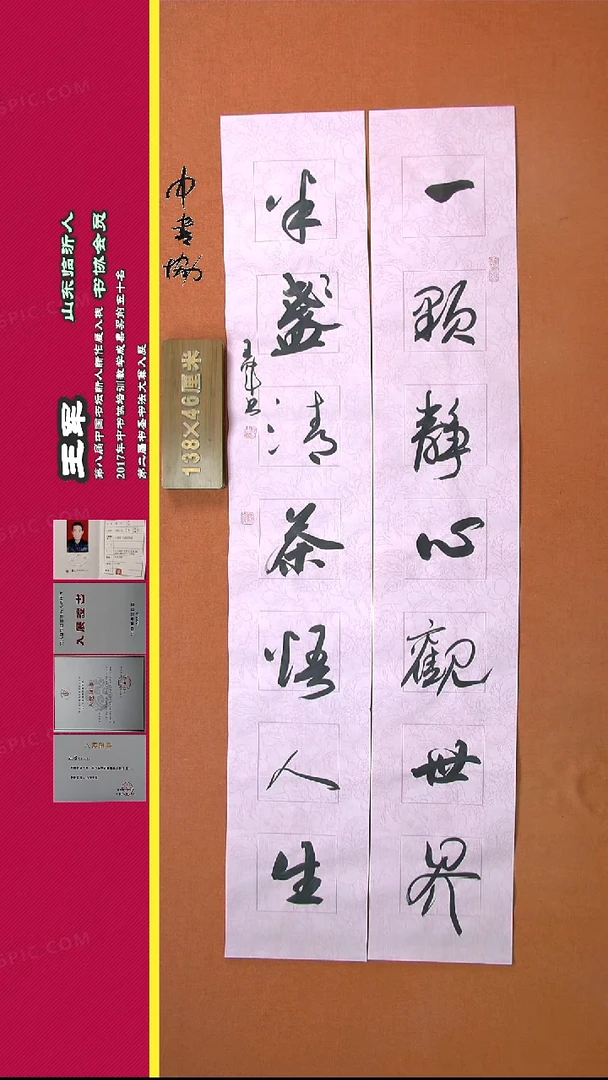 一顆靜心觀世界
半盞清茶悟人生
王軍書
中書協
138×46厘米
王军
山东临沂人
书协会员
第八届中国书坛新人新作展入展
2017年中书协培训教学成果奖前五十名
第二届书圣书法大赛入展
入展證书